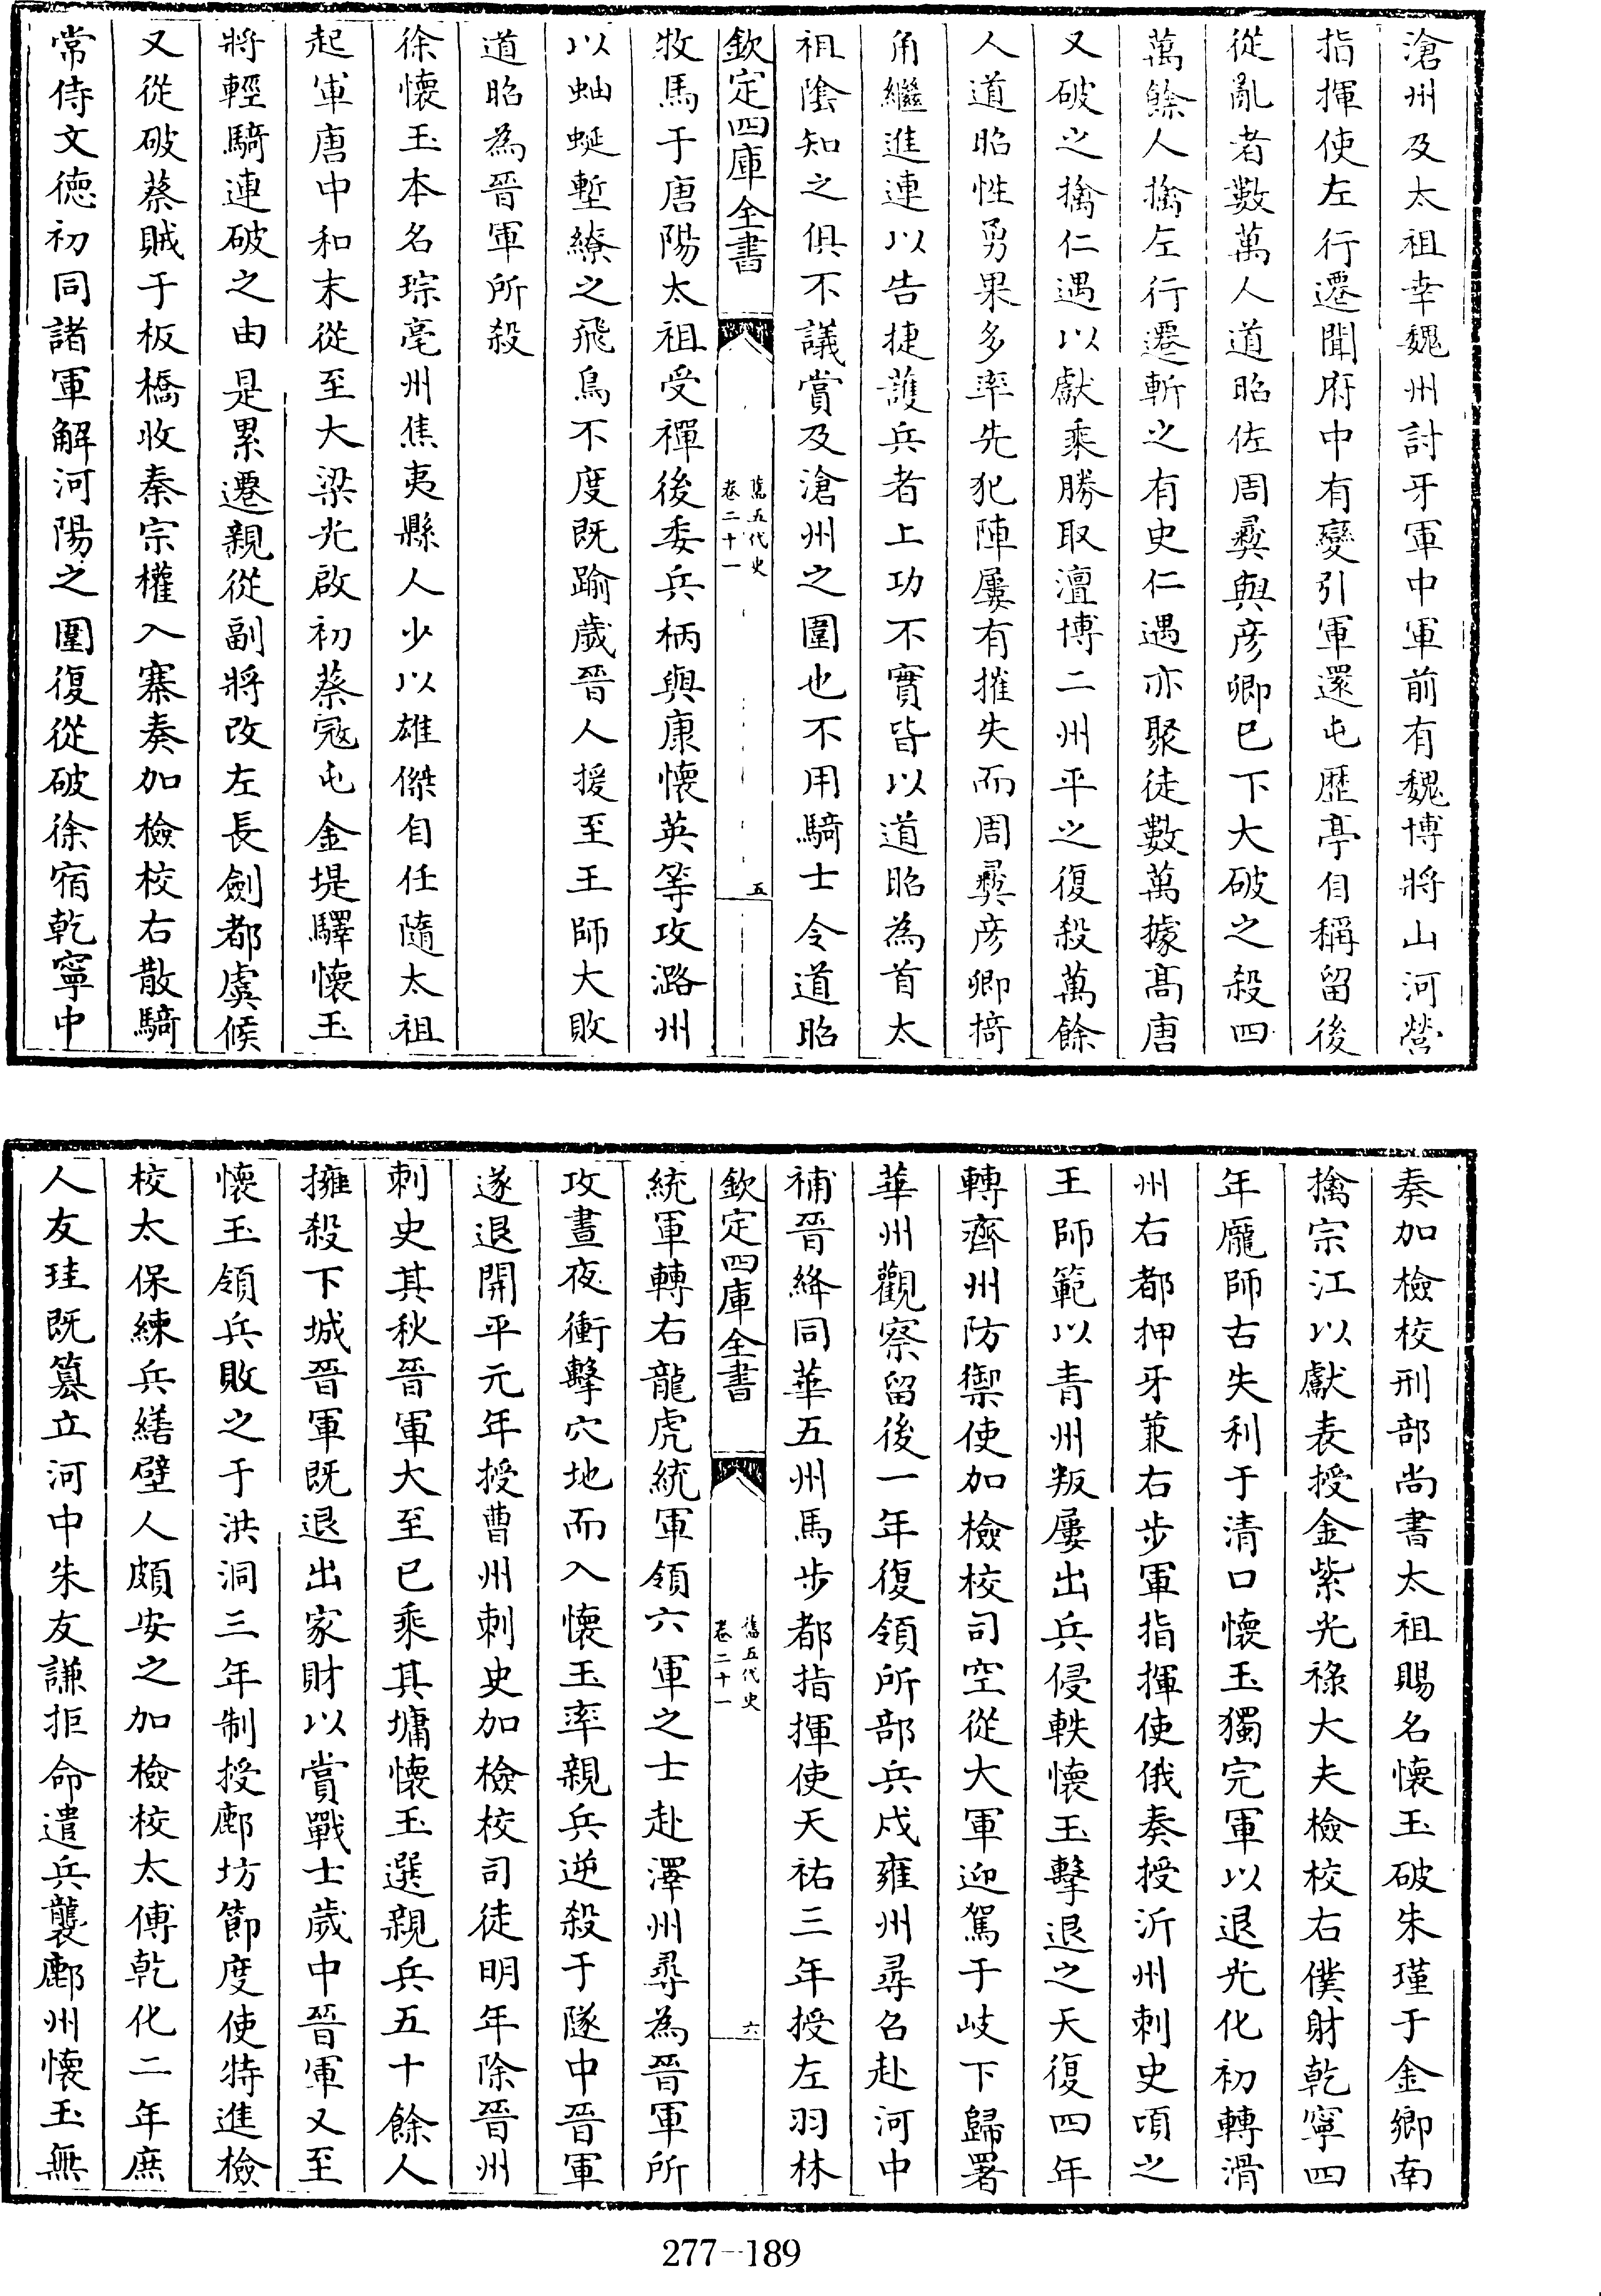 滄州及太祖幸魏州討牙軍中軍前有魏博將山河營
指揮使左行遷聞府中有變引軍還屯歷亭自稱留後
從亂者數萬人道昭佐周彛與彦卿已下大破之殺四
萬餘人擒左行遷斬之有史仁遇亦聚徒數萬據髙唐
又破之擒仁遇以獻乘勝取澶博二州平之復殺萬餘
人道昭性勇果多率先犯陣屢有摧失而周彛彦卿掎
角繼進連以告捷護兵者上功不實皆以道昭為首太
祖隂知之俱不議賞及滄州之圍也不用騎士令道昭
欽定四庫全書
舊五代史
卷二十一
五
牧馬于唐陽太祖受禪後委兵柄與康懷英等攻潞州
以蚰蜒塹繚之飛鳥不度既踰歲晉人援至王師大敗
道昭為晉軍所殺
徐懷玉本名琮亳州焦夷縣人少以雄傑自任隨太祖
起軍唐中和末從至大梁光啟初蔡冦屯金堤驛懷玉
將輕騎連破之由是累遷親從副將改左長劍都虞候
又從破蔡賊于板橋收秦宗權入寨奏加檢校右散騎
常侍文德初同諸軍解河陽之圍復從破徐宿乾寧中
奏加檢校刑部尚書太祖賜名懷玉破朱瑾于金鄉南
擒宗江以獻表授金紫光祿大夫檢校右僕射乾寧四
年龎師古失利于清口懷玉獨完軍以退光化初轉滑
州右都押牙兼右步軍指揮使俄奏授沂州刺史頃之
王師範以青州叛屢出兵侵軼懷玉擊退之天復四年
轉齊州防禦使加檢校司空從大軍迎駕于岐下歸署
華州觀察留後一年復領所部兵戍雍州尋名赴河中
補晉絳同華五州馬步都指揮使天祐三年授左羽林
欽定四庫全書
舊五代史
卷二十一
六
統軍轉右龍虎統軍領六軍之士赴澤州尋為晉軍所
攻晝夜衝擊穴地而入懷玉率親兵逆殺于隧中晉軍
遂退開平元年授曹州刺史加檢校司徒明年除晉州
刺史其秋晉軍大至已乘其墉懷玉選親兵五十餘人
擁殺下城晉軍既退出家財以賞戰士歲中晉軍又至
懷玉領兵敗之于洪洞三年制授鄜坊節度使特進檢
校太保練兵繕壁人頗安之加檢校太傅乾化二年庶
人友珪既簒立河中朱友謙拒命遣兵襲鄜州懷玉無
277-189